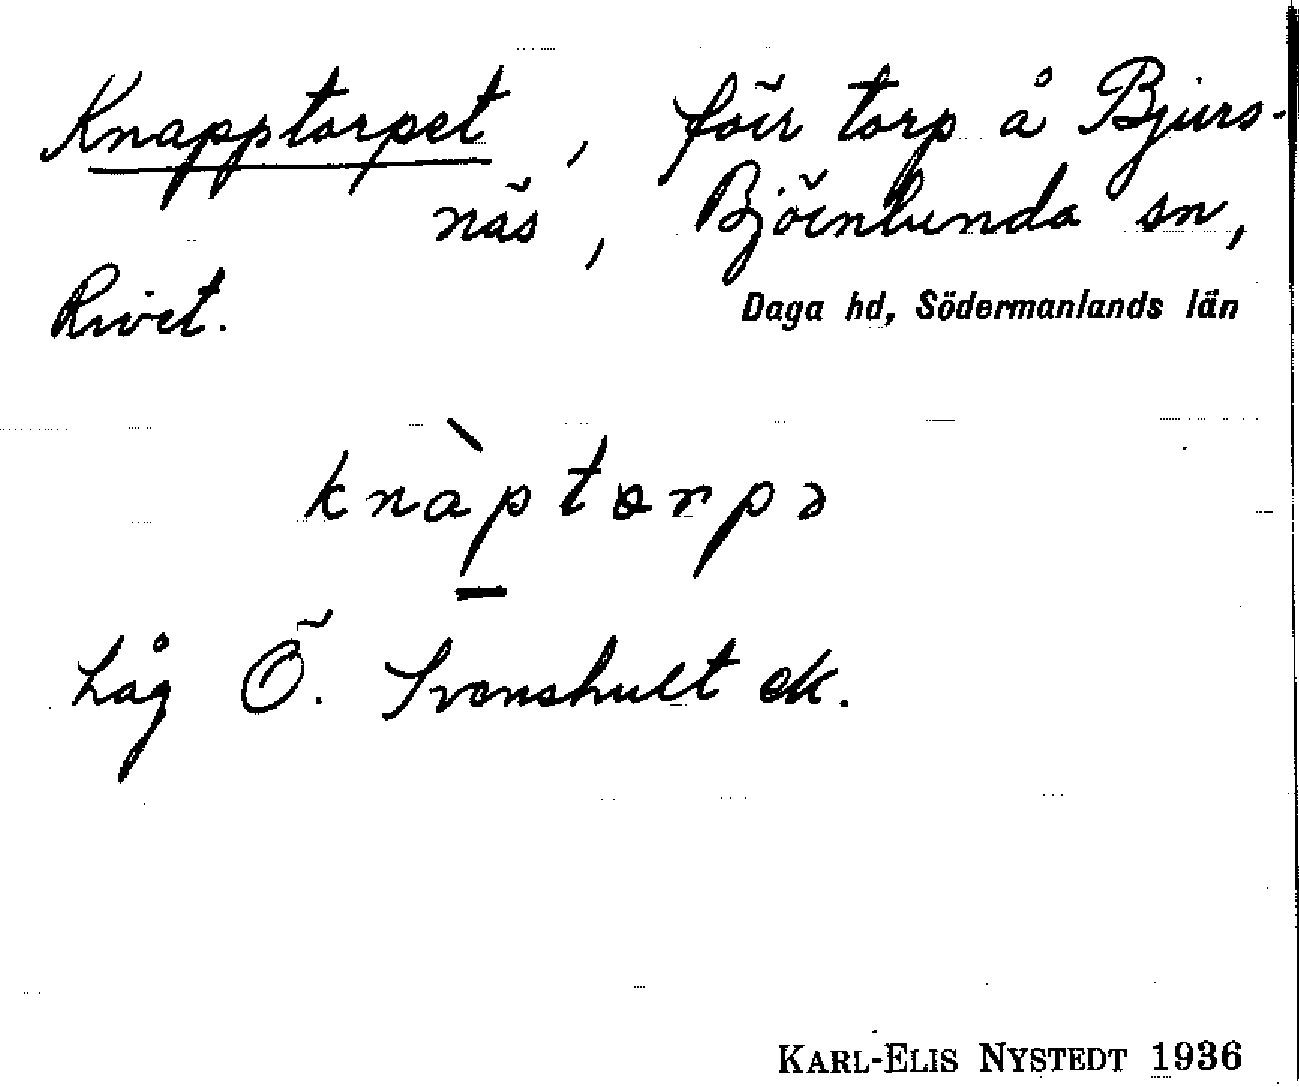 Knapptorpet, förr torp å Bjurs-
näs, Björnlunda sn,
Rivet. Daga hd, Södermanlands län
knàptorpə
Låg Ö. Svenshult ek.
KARL-ELIS NYSTEDT 1936